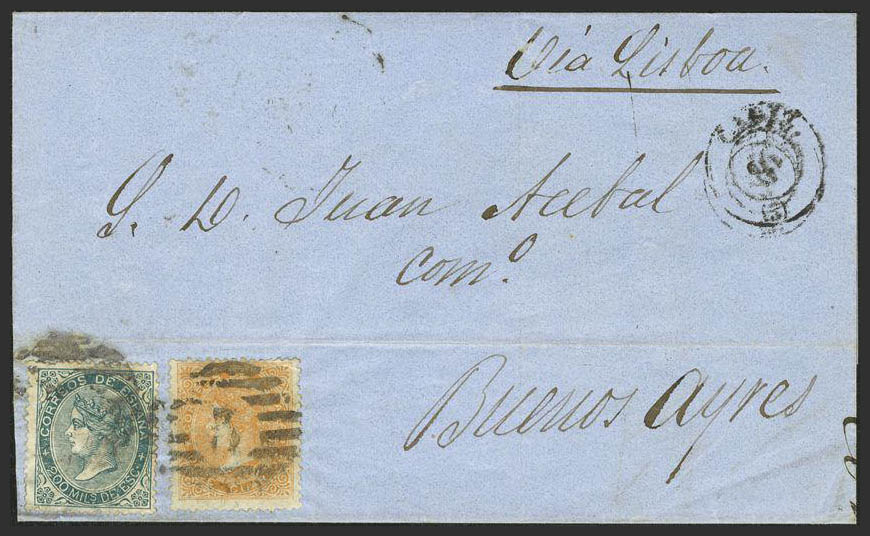 Via Lisboa.
S. D. Juan Acebal
com.º
Buenos Ayres
CORREOS DE ESPAÑA
200 MIL.S DE ESC.